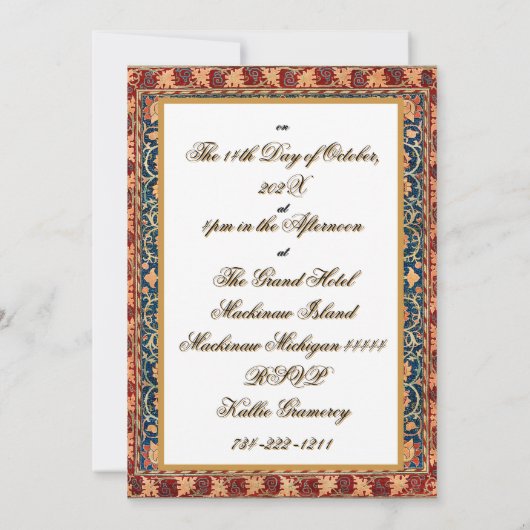 on
The 14th Day of October,
202X
at
4pm in the Afternoon
at
The Grand Hotel
Mackinaw Island
Mackinaw Michigan #####
RSVP
Kallie Gramercy
734-222-1211